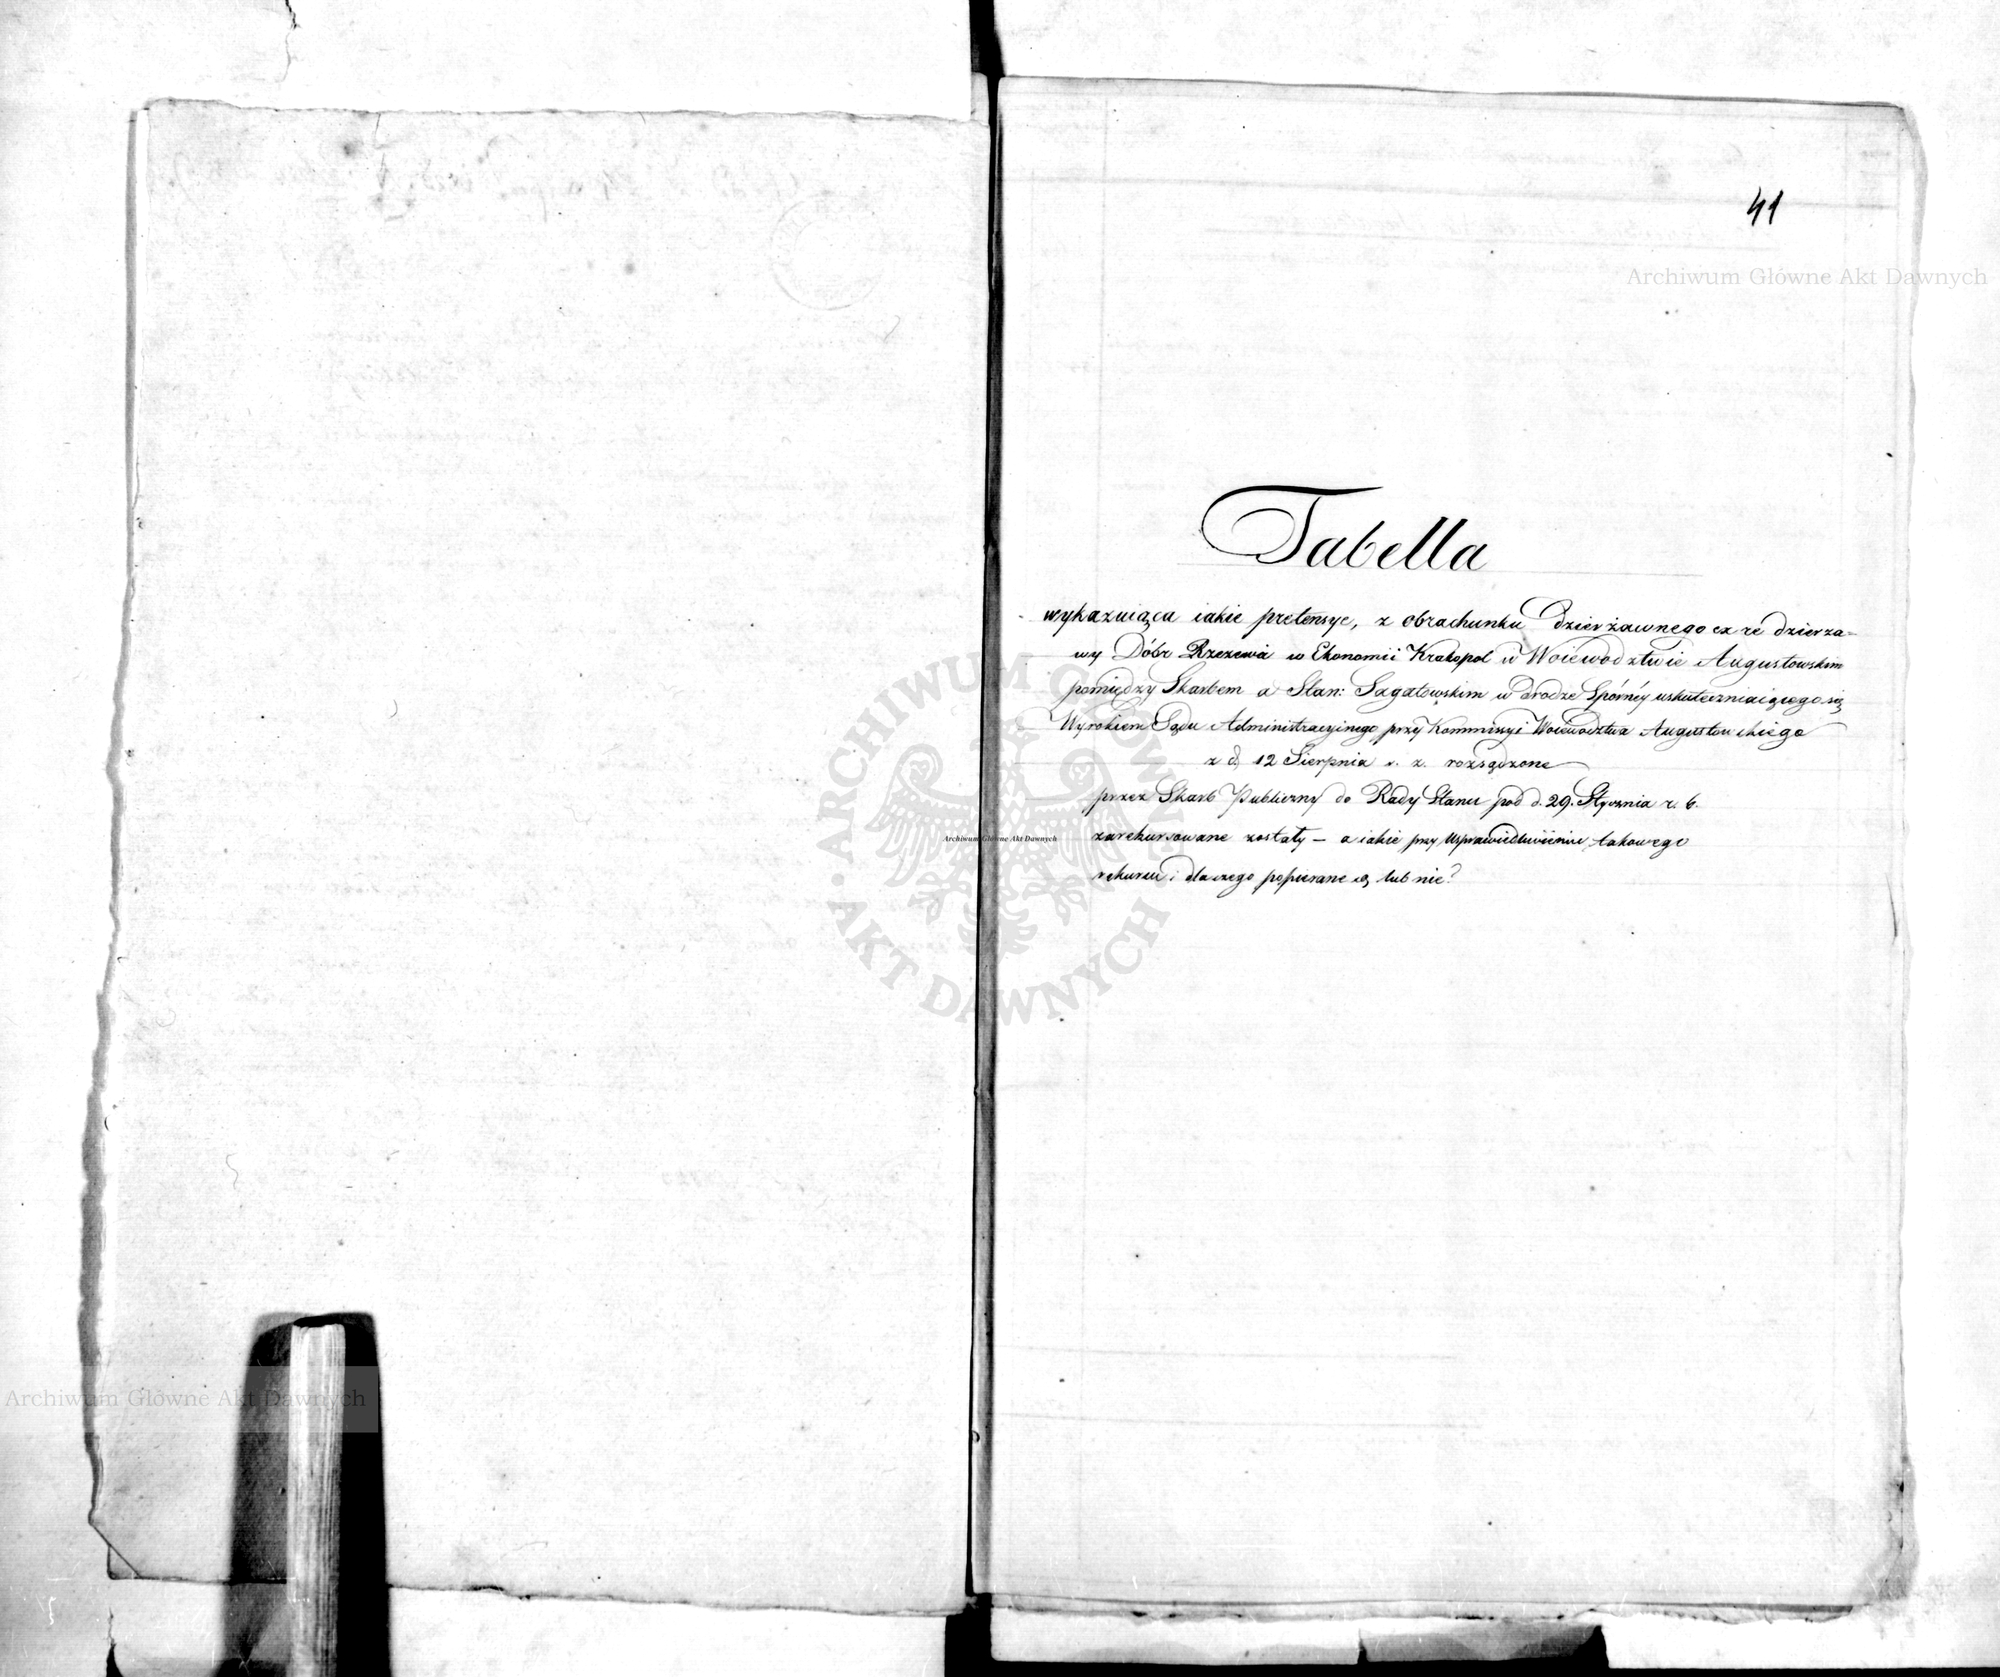 41
Archiwum Główne Akt Dawnych
Tabella
wykazuiąca iakie pretensye, z obrachunku Dzierżawnego ex re dzierza=
wy Dóbr Rzezewia w Ekonomii Krakopol w Woiewodztwie Augustowskim
pomiędzy Skarbem a Stan: Sagatowskim w drodze Spórnéy uskuteczniaiącego się
Wyrokiem Sądu Administracyinego przy Kommissyi Woiewodztwa Augustowskiego
z d. 12 Sierpnia r. z. rozsądzone
przez Skarb Publiczny do Rady Stanu pod d. 29. Stycznia r. b.
zarekursowane zostały — a iakie przy Usprawiedliwieniu takowego
rekursu i dlaczego popierane są lub nie?
ARCHIWUM GŁÓWNE AKT DAWNYCH
Archiwum Główne Akt Dawnych
Archiwum Główne Akt Dawnych